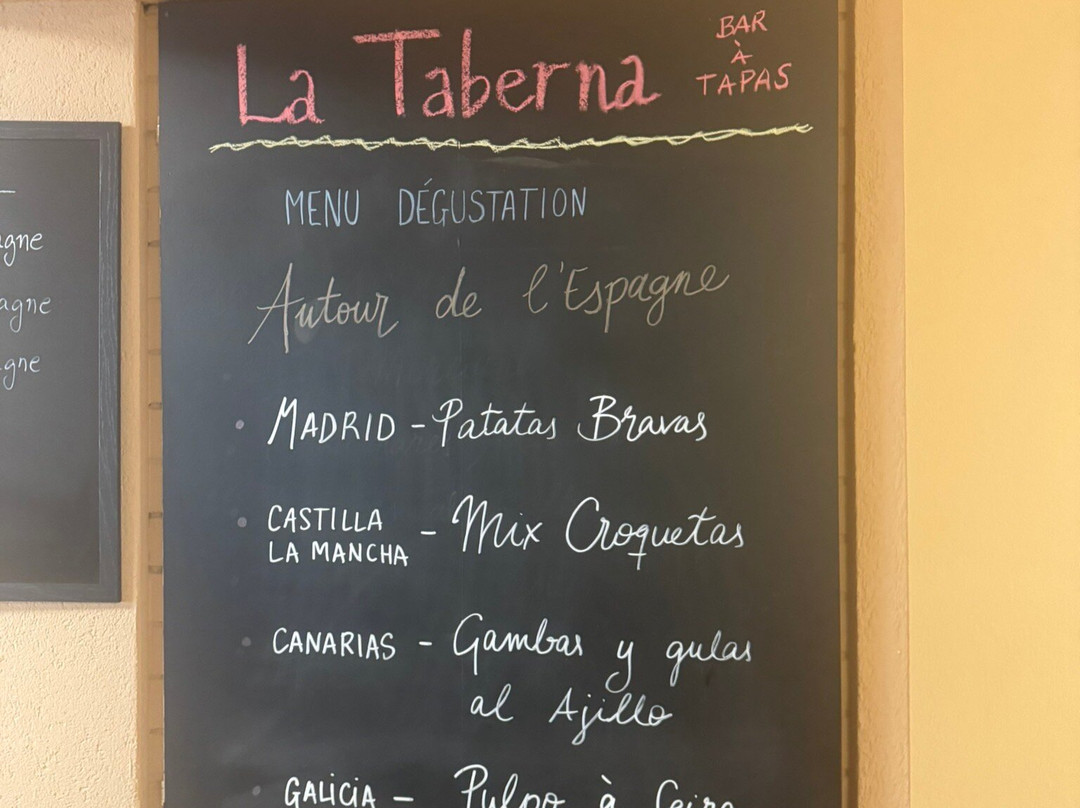 La Taberna
BAR
À
TAPAS
MENU DÉGUSTATION
Autour de l'Espagne
• MADRID - Patatas Bravas
• CASTILLA
LA MANCHA - Mix Croquetas
• CANARIAS - Gambas y gulas
al Ajillo
• GALICIA - Pulpo à Feira